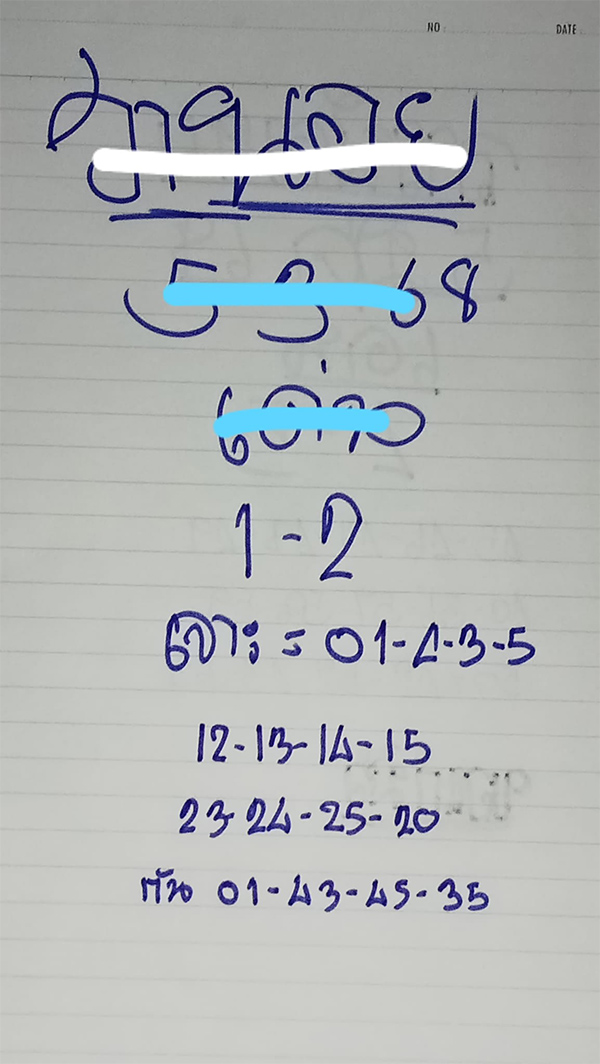 NO DATE
5 3 68
1-2
เจาะ = 01-4-3-5
12-13-14-15
23-24-25-20
กัน 01-43-45-35